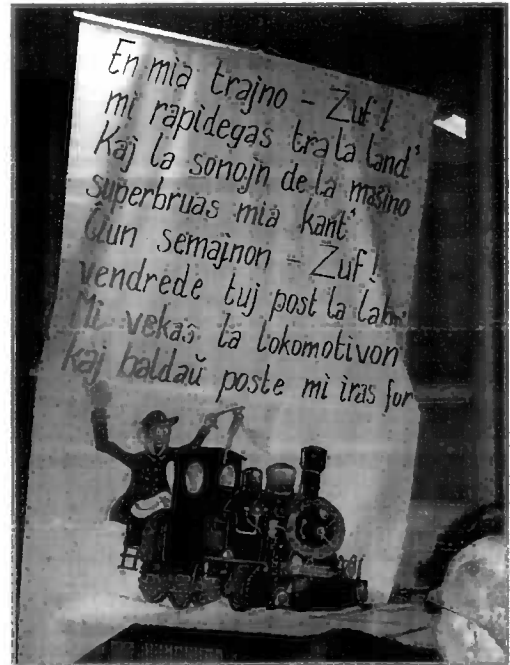 En mia trajno – Zuf!
mi rapidegas tra la land'
Kaj la sonojn de la maŝino
superbruas mia kant'
Ĉiun semajnon – Zuf!
vendrede tuj post la
Mi vekas la lokomotivon
kaj baldaŭ poste mi iras for